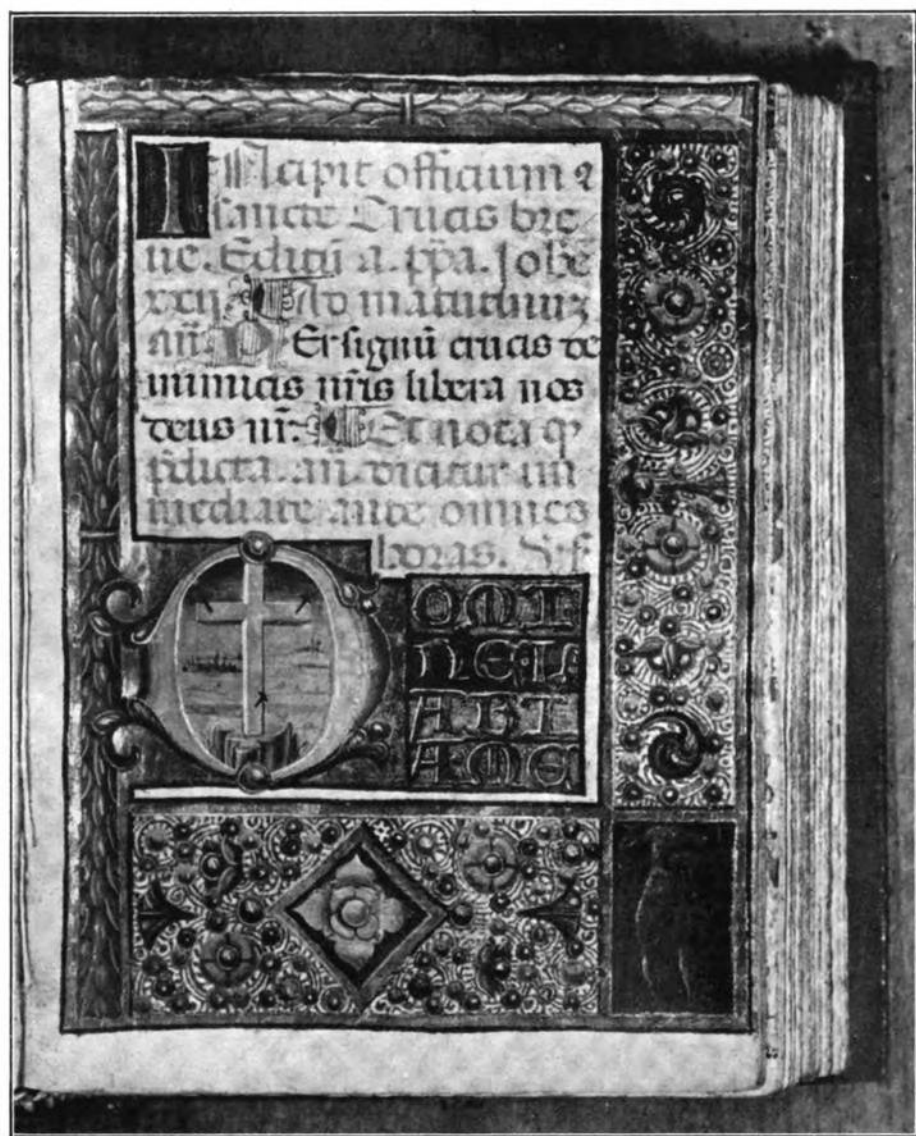 INcipit officium
sancte Crucis bre
ue. Editū a. ppa. Johē
xxij. Ad matutinuz
an̄. PEr signū crucis de
inimicis nr̄is libera nos
deus nr̄. Et nota q
p̄dicta. an̄. dicitur im
mediate ante omnes
horas.
DOMI
NE LA
BIA
A ME